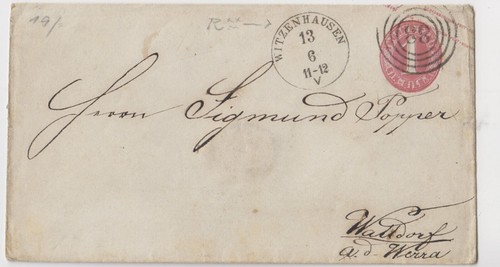 19/-
WITZENHAUSEN
13
6
11-12
V
Herrn Sigmund Popper
Walldorf
a. d. Werra